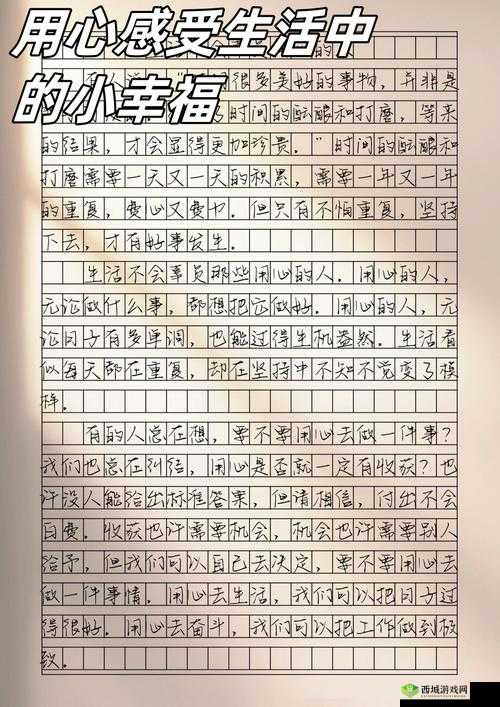 用心感受生活中
的小幸福
的
很多美好的事物，并非是
时间的酝酿和打磨，等来
的结果，才会显得更加珍贵。”时间的酝酿和
打磨需要一天又一天的积累，需要一年又一年
的重复，费心又费力。但只有不怕重复，坚持
下去，才有好事发生。
生活不会辜负那些用心的人。用心的人，
无论做什么事，都想把它做好。用心的人，无
论日子有多单调，也能过得生机盎然。生活看
似每天都在重复，却在坚持中不知不觉变了模
样。
有的人总在想，要不要用心去做一件事？
我们也总在纠结，用心是否就一定有收获？也
许没人能给出标准答案，但请相信，付出不会
白费。收获也许需要机会，机会也许需要别人
给予，但我们可以自己去决定，要不要用心去
做一件事情。用心去生活，我们可以把日子过
得很好。用心去奋斗，我们可以把工作做到极
致。
西城游戏网